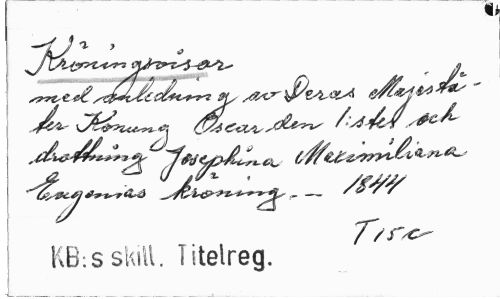 Kröningsvisor
med anledning av Deras Majestä-
ter Konung Oscar den 1:stes och
drottning Josephina Maximiliana
Eugenias kröning. — 1844
T 15 c
KB:s skill. Titelreg.